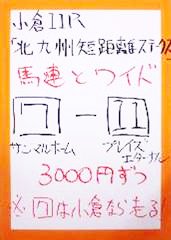 小倉11R
「北九州短距離ステークス
馬連とワイド
7 - 11
サンマルホーム ブレイズエターナル
3000円ずつ
※ 7は小倉なら走る!